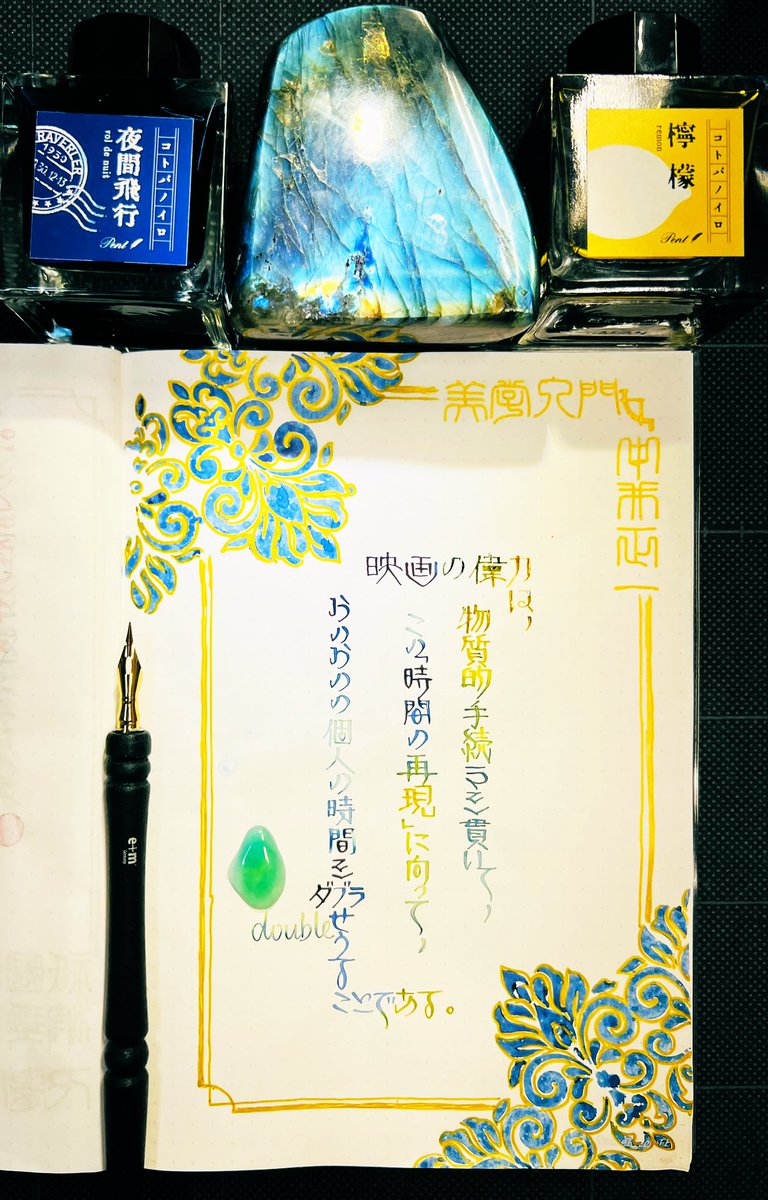 コトバノイロ
夜間飛行
vol de nuit
Pent
コトバノイロ
檸檬
remon
Pent
美学入門
中井正一
映画の偉力は、
物質的手続きを貫いて、
この「時間の再現」に向って、
おのおのの個人の時間を
ダブラせうる
double
ことである。
e+m